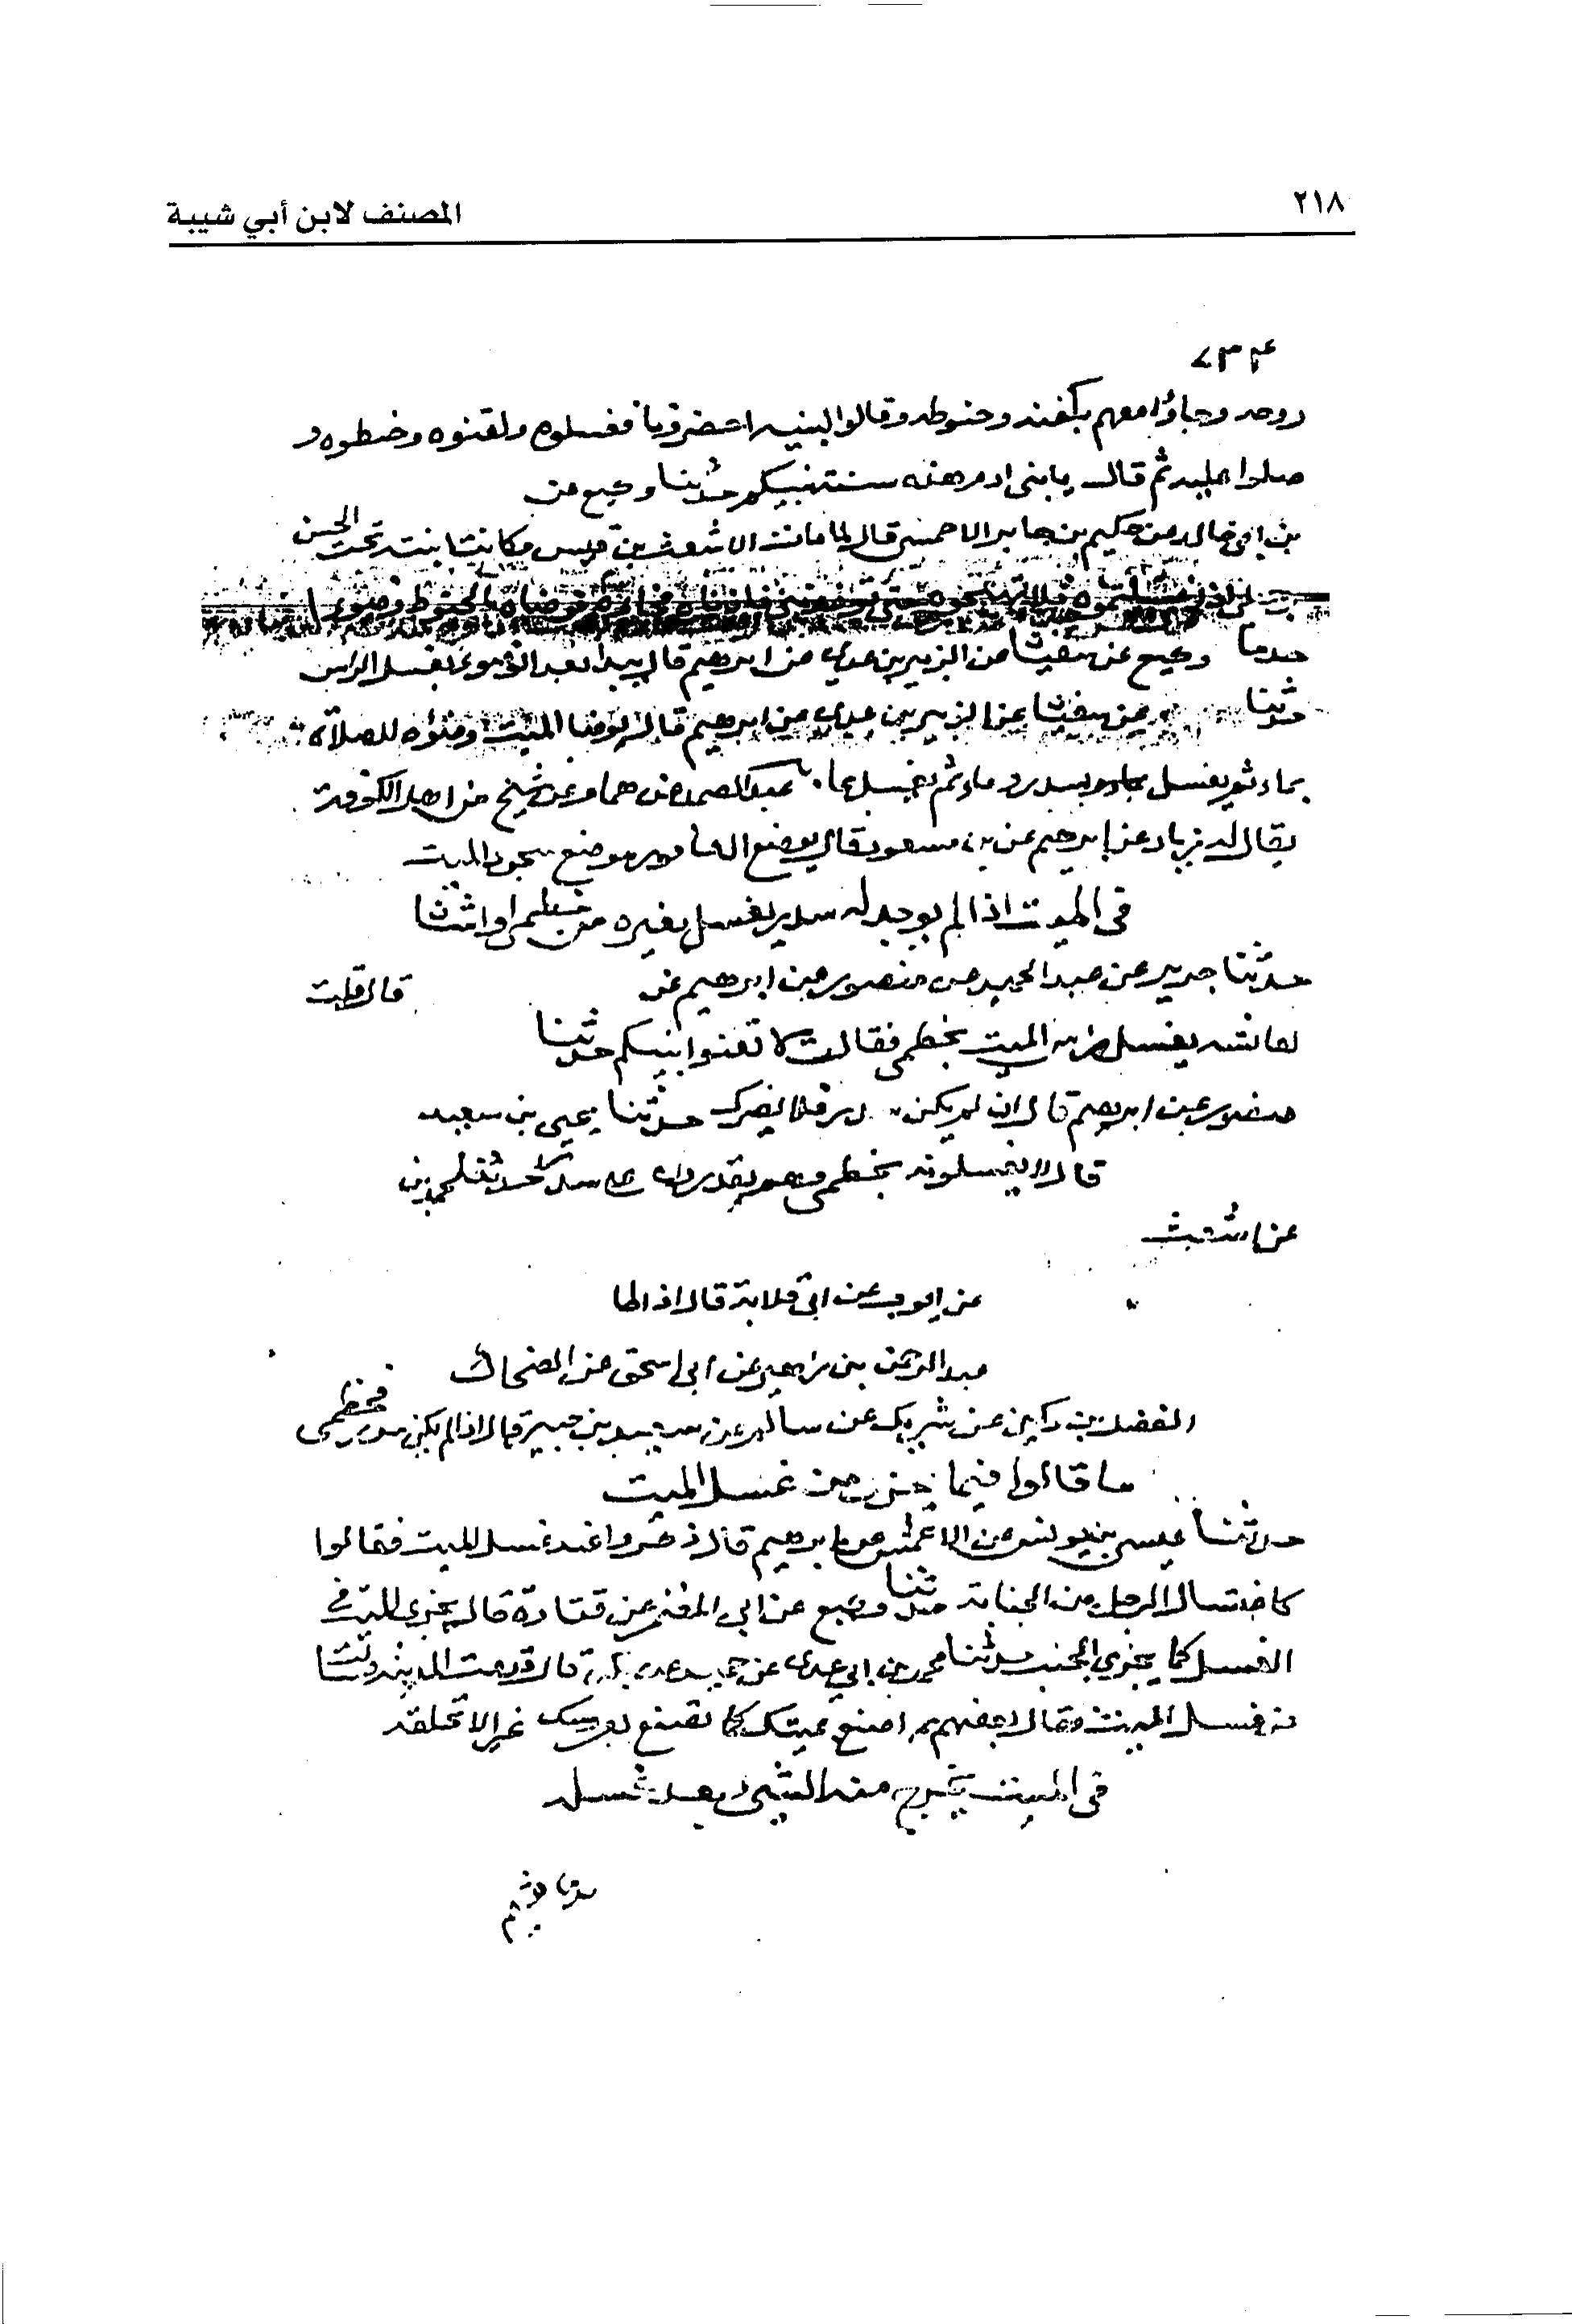 ٢١٨
المصنف لابن أبي شيبة
٧٣٤
روحه وجاؤا معهم بكفنه وحنوطه وقالوا لبنيه احضرونا فغسلوه ولقنوه وحنطوه و
صلوا عليه ثم قال يا بنى ادم هذه سنتنبيكم حدثنا وكيع عن
بن ابى خالد عن حكيم بن جابر الاحمسى قال لما مات الاشعث بن قيس وكانت ابنته تحت الحسن
اذا غسلتموه فلا تهيجوه حتى توذنونى فاذناه فجاء فوضاه بالحنوط وضوء
حدثنا وكيع عن سفيان عن الزبير بن عدى عن ابرهيم قال يبدا بعد الوضوء بغسل الراس
حدثنا عن سفيان عن الزبير بن عدى عن ابرهيم قال يوضا الميت وضوءه للصلاة
بماء ثم يغسل بماء وسدر وماء ثم يغسل بماء عبد الصمد عن همام عن شيخ من اهل الكوفة
يقال له زياد عن ابرهيم عن بن مسعود قال يوضع الكافور موضع سجود الميت
فى الميت اذا لم يوجد له سدر يغسل بغيره من خطمى او اشنان
حدثنا جرير عن عبد الحميد عن منصور عن ابرهيم عن قال قلت
لعائشه يغسل راس الميت بخطمى فقالت لا تعنوا ميتكم حدثنا
منصور عن ابرهيم قال ان لم يكن سدر فلا يضرك حدثنا يحيى بن سعيد
قال لا يغسلونه بخطمى وهم يقدرون على سدر حدثنا محمد بن
عن اشعث
عن ايوب عن ابى قلابة قال اذا
عبد الرحمن بن عن ابى اسحق عن الضحاك
الفضل بن دكين عن شريك عن سالم عن سعيد بن جبير قال اذا لم يكن سدر فخطمى
ما قالوا فيما يجزى من غسل الميت
حدثنا عيسى بن يونس عن الاعمش عن ابرهيم قال ذكروا عنده غسل الميت فقالوا
كاغتسال الرجل من الجنابة حدثنا وكيع عن ابى عن قتادة قال يجزى الميت فى
الغسل كما يجزى الجنب حدثنا محمد بن ابى عدى عن بكر قال قدمت المدينة
غسل الميت فقال بعضهم اصنع بميتك كما تصنع بعروسك غير الا تحلقه
فى الميت يخرج منه الشىء بعد غسله